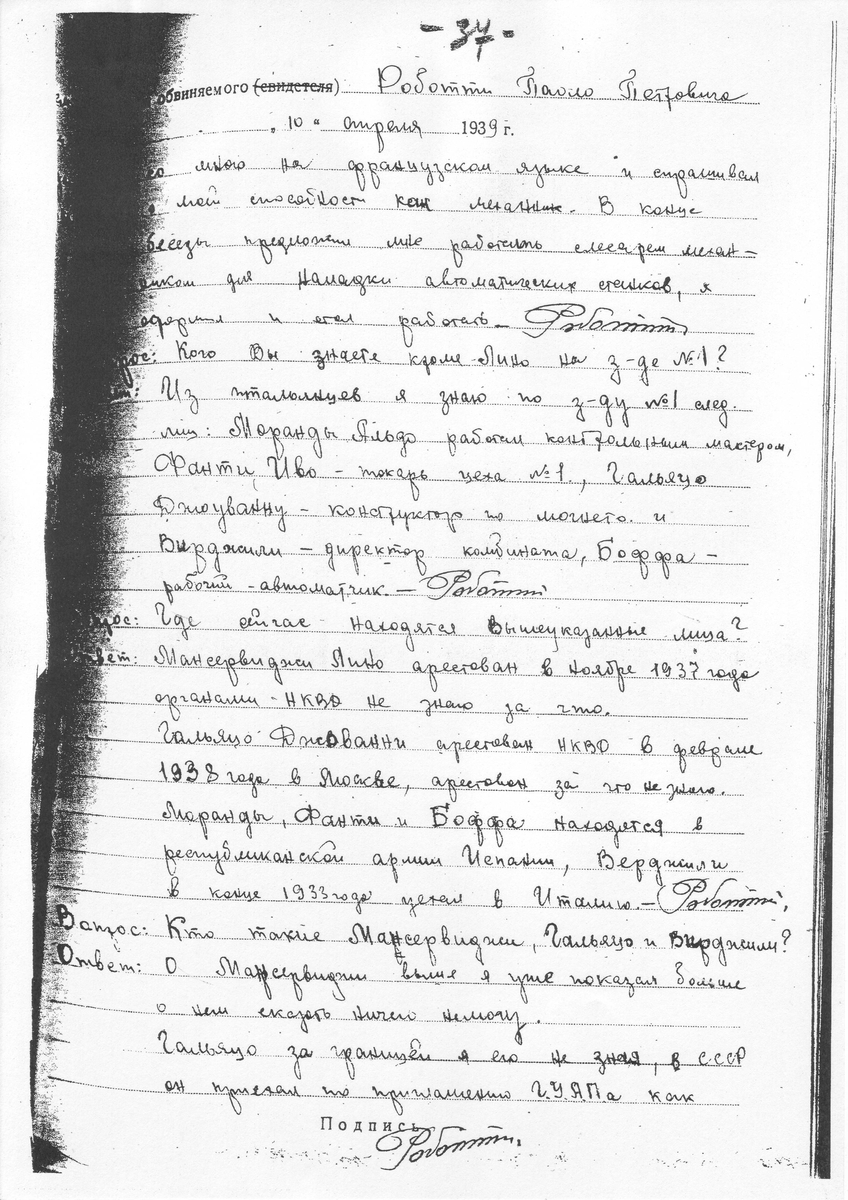 - 34 -
обвиняемого (свидетеля) Роботти Паоло Петровича
„10“ апреля 1939 г.
мною на французском языке и спрашивал
мои способности как механик. В конце
беседы предложил мне работать слесарем механ-
иком для наладки автоматических станков, я
оформил и стал работать — Роботти
рос: Кого Вы знаете кроме Лино на з-де №1?
Из итальянцев я знаю по з-ду №1 след.
лиц: Моранды Альдо работал контрольным мастером,
Фанти Иво - токарь цеха №1, Гальяцо
Джоуванну - конструктор по могнето. и
Вирджили - директор комбината, Боффа -
рабочий - автоматчик. — Роботти
рос: Где сейчас находятся вышеуказанные лица?
вет: Мансервиджи Лино арестован в ноябре 1937 года
органами - НКВД не знаю за что.
Гальяцо Джованни арестован НКВД в феврале
1938 года в Москве, арестован за что не знаю.
Моранды, Фанти и Боффа находятся в
республиканской армии Испании, Верджили
в конце 1933 года уехал в Италию. — Роботти
Вопрос: Кто такие Мансервиджи, Гальяцо и Вирджили?
Ответ: О Мансервиджи выше я уже показал больше
о нем сказать ничего немогу.
Гальяцо за границей я его не знал, в СССР
он приехал по приглашению ГУАПа как
Подпись
Роботти